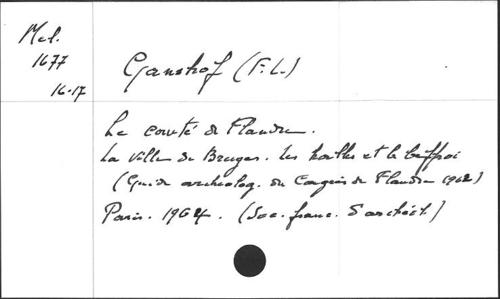 Mél.
1677
16-17
Ganshof (F.L.)
Le comté de Flandre.
La ville de Bruges. Les halles et le beffroi
(Guide archéolog. du Congrès de Flandre 1962)
Paris. 1964. (Soc. franc. d'archéol.)